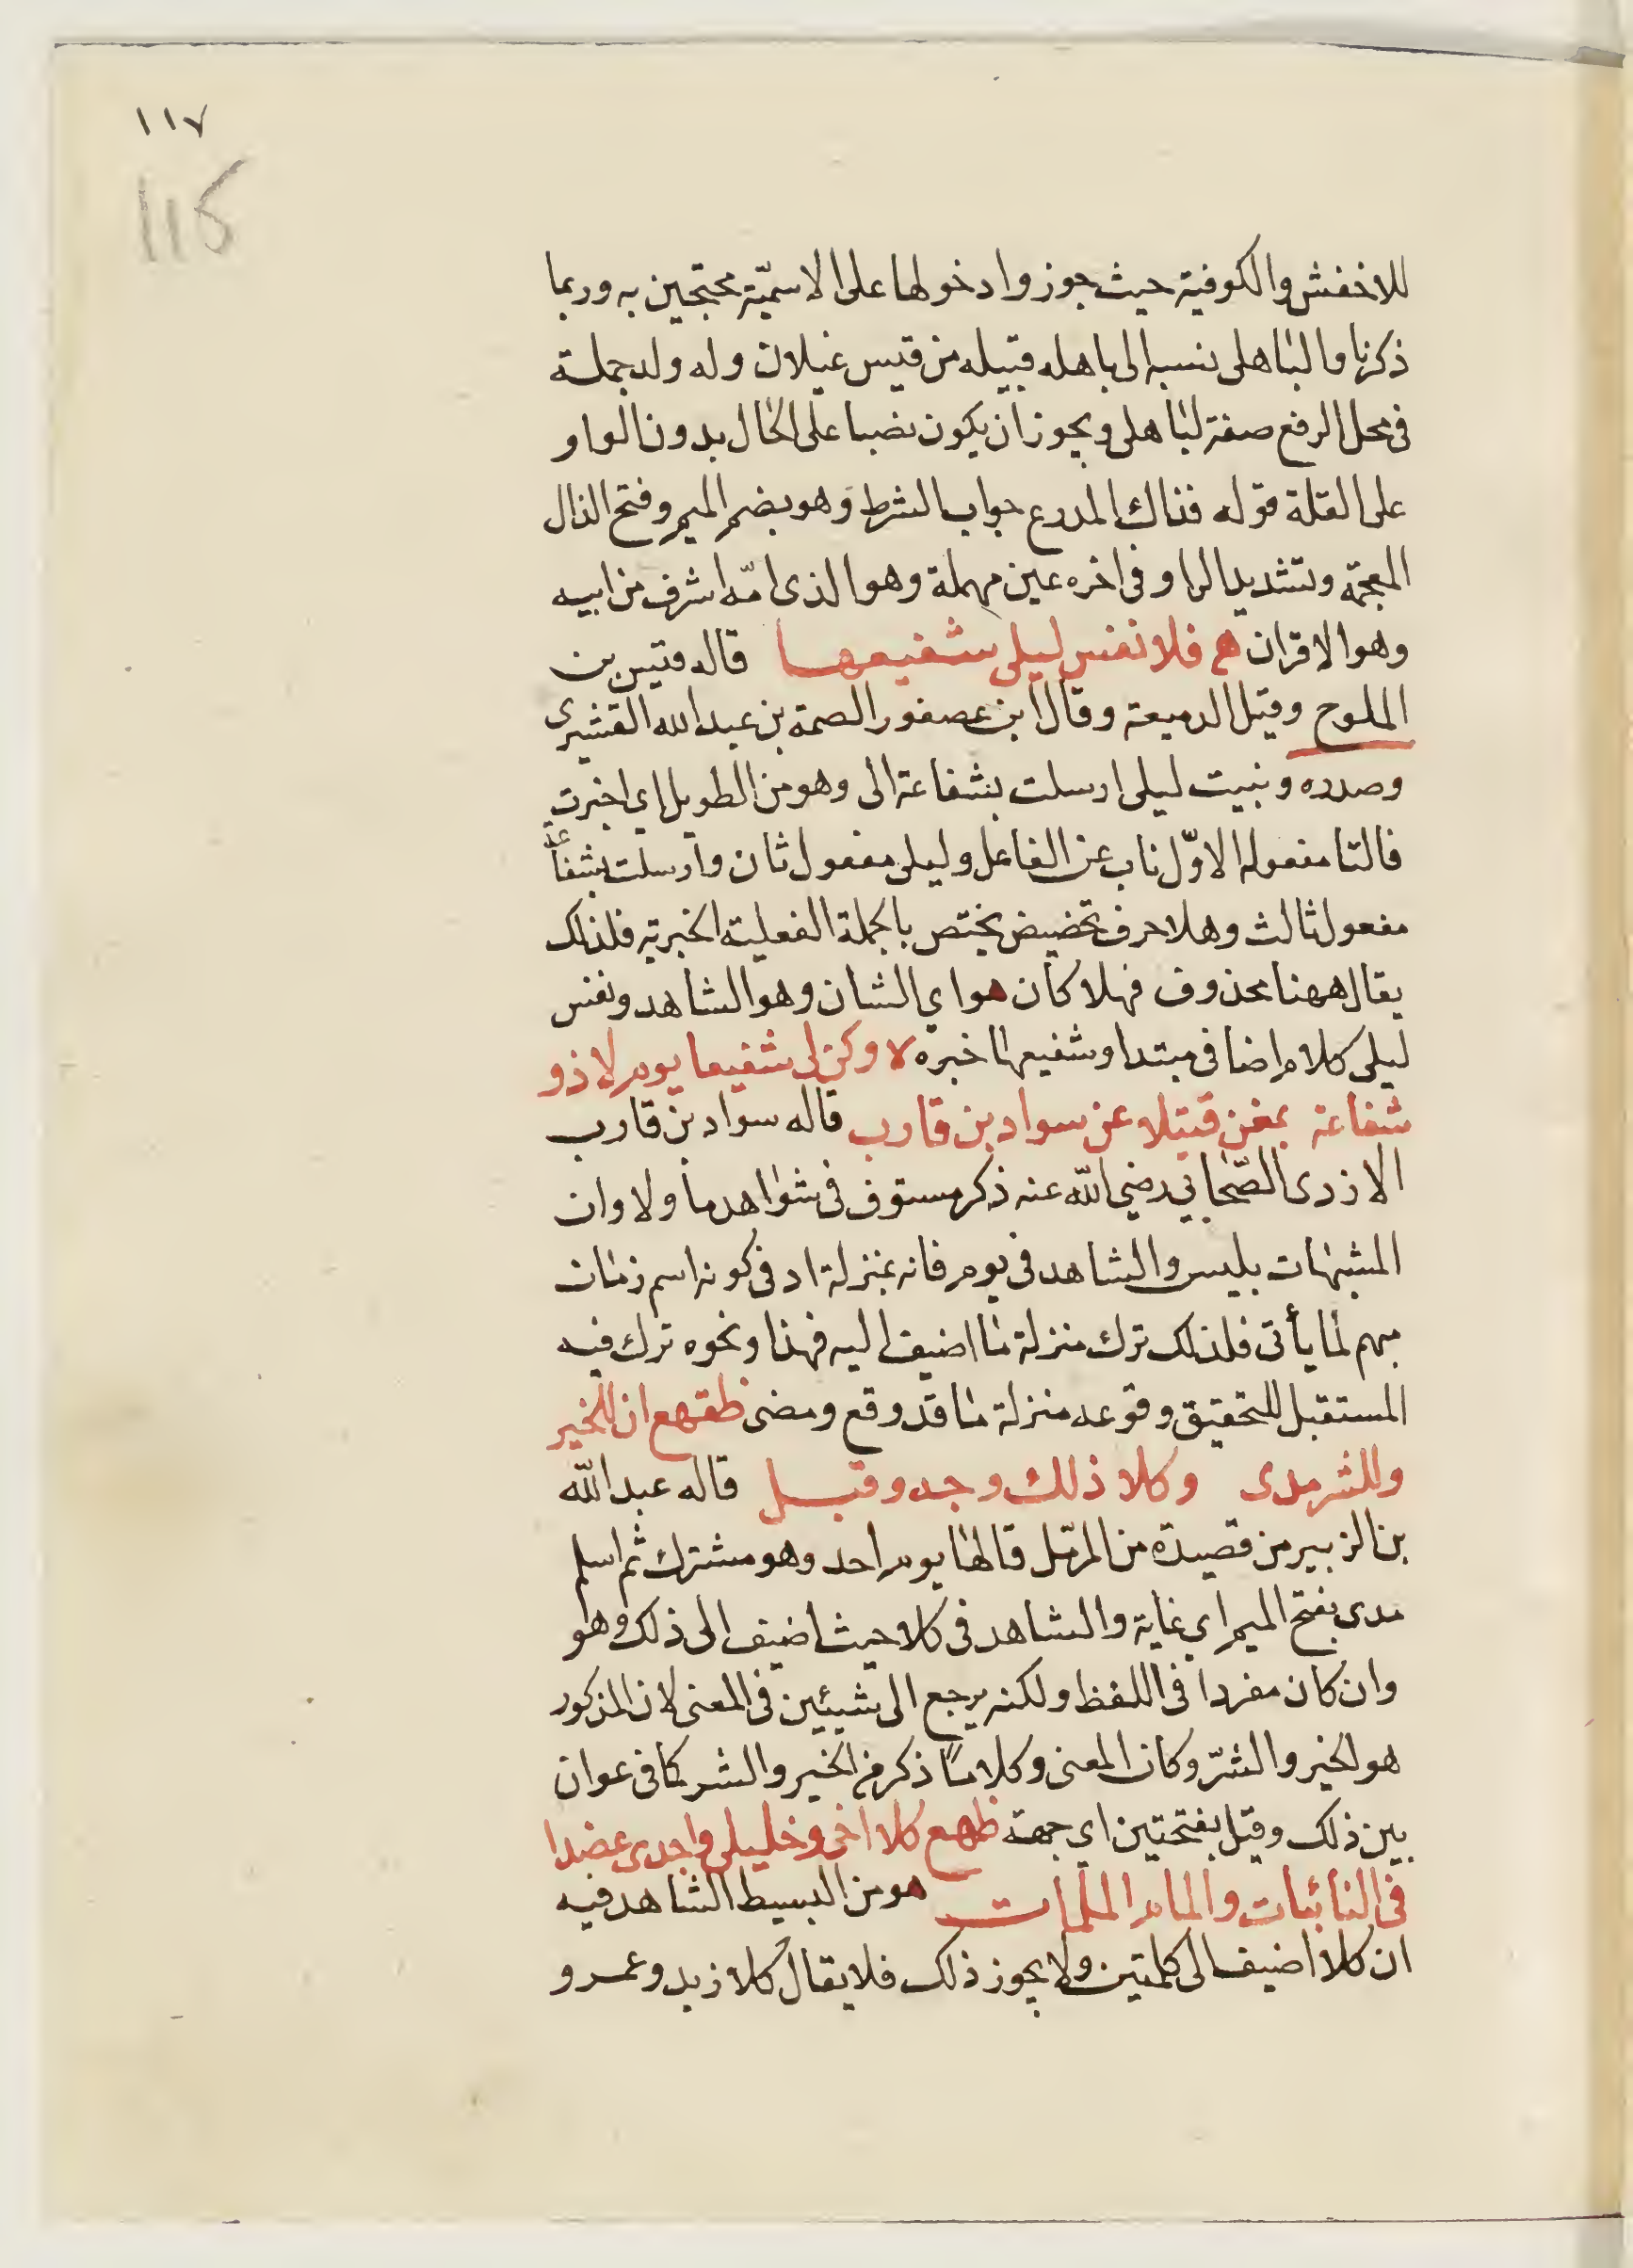 ١١٧
115
للاخفش والكوفية حيث جوزوا دخولها على الاسميّة محتجين به وربما
ذكرنا والباهلى نسبه الى باهله قبيله من قيس غيلان وله ولد جملة
فى محل الرفع صفة لباهلى ويجوز ان يكون نصبا على الحال بدون الواو
على القلة قوله فذاك المذرع جواب الشرط وهو بضم الميم وفتح الذال
المعجمة وتشديد الرا وفى اخره عين مهملة وهو الذى امّه اشرف من ابيه
وهو الاقران هم فلا نفس ليلى شفيعها قاله قيس بن
الملوح وقيل الدميعة وقال ابن عصفور الصمة بن عبد الله القشيرى
وصدره ونبيت ليلى ارسلت بشفاعة الى وهو من الطويل اي اخبرت
فالتا مفعوله الاوّل ناب عن الفاعل وليلى مفعول ثان وارسلت بشفاعة
مفعول ثالث وهلا حرف تحضيض يختص بالجملة الفعلية الخبرية فلذلك
يقال ههنا محذوف فهلا كان هو اي الشان وهو الشاهد ونفس
ليلى كلام اضافى مبتدا وشفيعها خبره لا وكن لى شفيعا يوم لا ذو
شفاعة بمغن قتيلا عن سواد بن قارب قاله سواد بن قارب
الازدى الصّحابي رضي الله عنه ذكر مستوف فى شواهد ما ولا وان
المشبهات بليس والشاهد فى يوم فانه بمنزلة اد فى كونه اسم زمان
مبهم لما يأتى فلذلك ترك منزلة ما اضيف اليه فهذا ونحوه ترك فيه
المستقبل للتحقيق وقوعه منزلة ما قد وقع ومضى ظقهع ان للخير
وللشر مدى وكلا ذلك وجه وقبل قاله عبد الله
بن الزبير من قصيدة من المرمّل قالها يوم احد وهو مشترك ثم اسلم
مدى بفتح الميم اي غاية والشاهد فى كلا حيث اضيف الى ذلك وهو
وان كان مفردا فى اللفظ ولكنه يرجع الى شيئين فى المعنى لان المذكور
هو الخير والشرّ وكان المعنى وكلا ما ذكر من الخير والشر كما فى عوان
بين ذلك وقبل بفتحتين اي جهة ظهع كلا اخى وخليلى واجدى عضدا
فى النائبات والمام الملمات هو من البسيط الشاهد فيه
ان كلا اضيف الى كلمتين ولا يجوز ذلك فلا يقال كلا زيد وعمرو